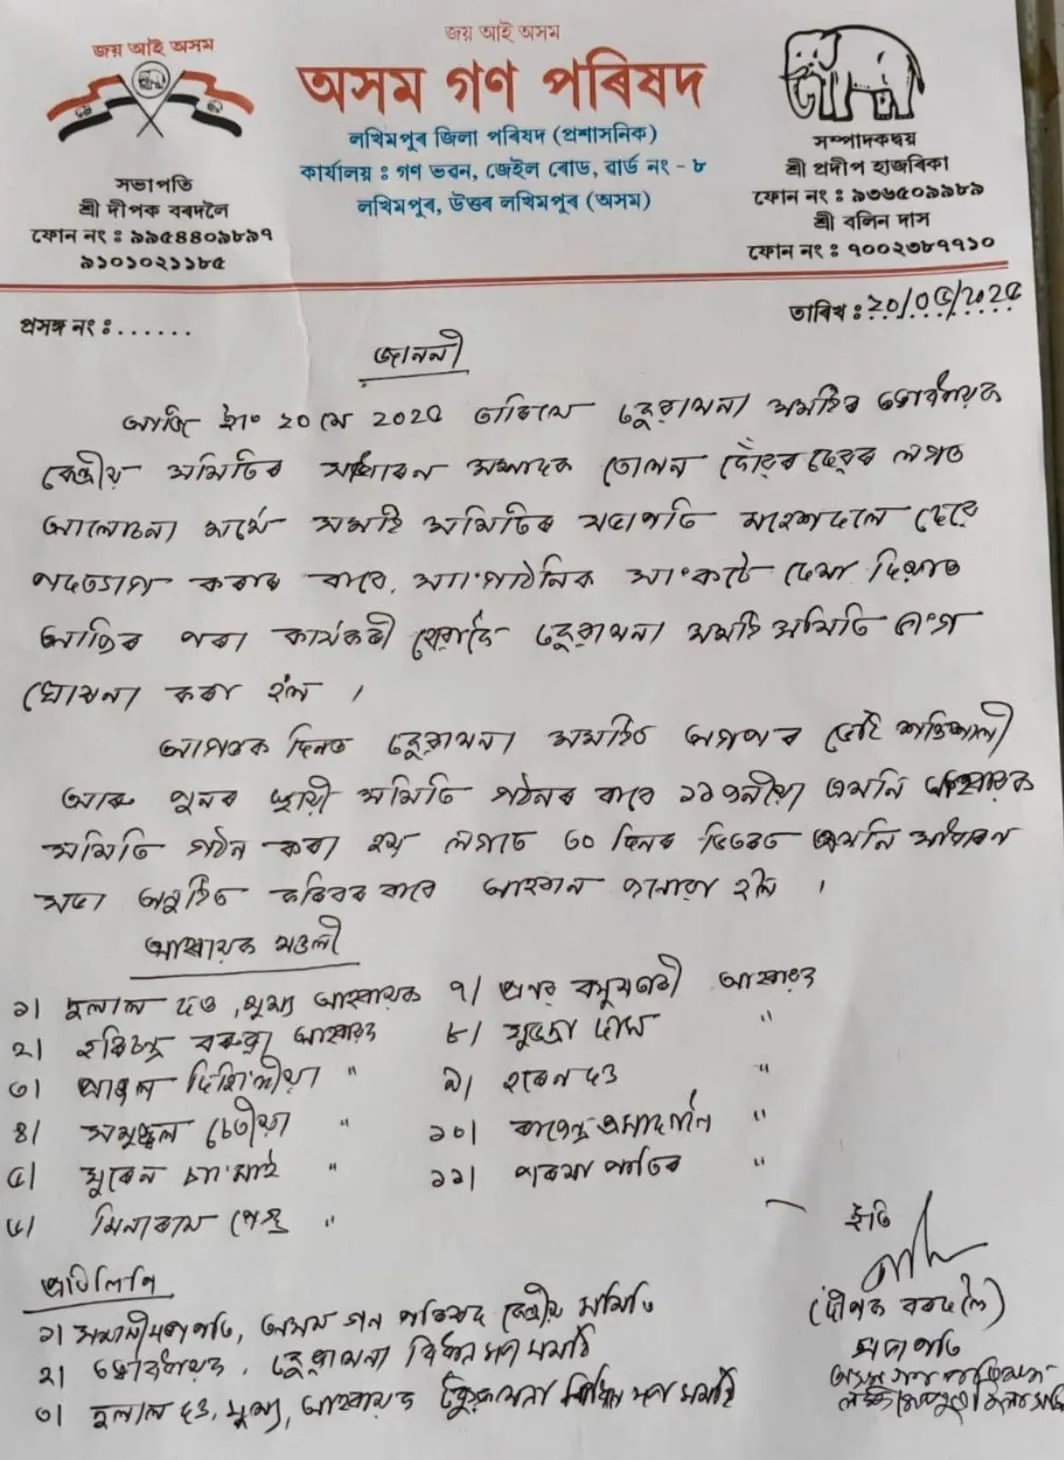 জয় আই অসম
জয় আই অসম
অসম গণ পৰিষদ
লখিমপুৰ জিলা পৰিষদ (প্ৰশাসনিক)
কাৰ্যালয় ঃ গণ ভৱন, জেইল ৰোড, ৱাৰ্ড নং - ৮
লখিমপুৰ, উত্তৰ লখিমপুৰ (অসম)
সভাপতি
শ্ৰী দীপক বৰদলৈ
ফোন নং ঃ ৯৯৫৪৪০৯৮৯৭
৯১০১০২১১৮৫
সম্পাদকদ্বয়
শ্ৰী প্ৰদীপ হাজৰিকা
ফোন নং ঃ ৯৩৬৫০৯৯৮৯
শ্ৰী বলিন দাস
ফোন নং ঃ ৭০০২৩৮৭৭১০
প্ৰসঙ্গ নং ঃ......
তাৰিখ ঃ ২০/০৫/২০২৫
জাননী
আজি ইং ২০ মে 202৫ তাৰিখে ঢেকুৱাখনা সমষ্টিৰ তত্বাৱধায়ক
কেন্দ্ৰীয় সমিতিৰ সাধাৰন সম্পাদক লগত
আলোচনা মৰ্মে সমষ্টি সমিতিৰ সভাপতি দেৱে
পদত্যাগ কৰাৰ বাবে, সাংগাঠনিক সাংকটে দেখা দিয়াত
আজিৰ পৰা কাৰ্যকৰী হোৱাকৈ ঢেকুৱাখনা সমষ্টি সমিতি ভংগ
ঘোষনা কৰা হ'ল ।
আগতক দিনত ঢেকুৱাখনা সমষ্টিত অগপৰ ভেটি শক্তিশালী
আৰু পুনৰ স্থায়ী সমিতি গঠনৰ বাবে ১১ জনীয়া এখনি আহ্বায়ক
সমিতি গঠন কৰা হয় লগতে ৩০ দিনৰ ভিতৰত এখনি সাধাৰন
সভা অনুষ্ঠিত কৰিবৰ বাবে আহবান জনোৱা হ'ল ।
আহ্বায়ক মণ্ডলী
১| দুলাল দত্ত, মুখ্য আহবায়ক ৭| প্ৰনৱ বসুমতাৰী আহ্বায়ক
২| হৰিচন্দ্ৰ বৰুৱা আহ্বায়ক ৮| দাস "
৩| " ৯| হৰেন দত্ত "
৪| চেতীয়া " ১০| "
৫| সুৰেন চাংমাই " ১১| পাতিৰ "
৬| মিনাৰাম পেগু "
ইতি
(দীপক বৰদলৈ)
সভাপতি
অসম গণ পৰিষদ
প্ৰতিলিপি
১| সভাপতি, অসম গন পৰিষদ কেন্দ্ৰীয় সমিতি
২| তত্বাৱধায়ক, ঢেকুৱাখনা বিধান সভা সমষ্টি
৩| দুলাল দত্ত, মুখ্য, আহবায়ক ঢেকুৱাখনা বিধান সভা সমষ্টি